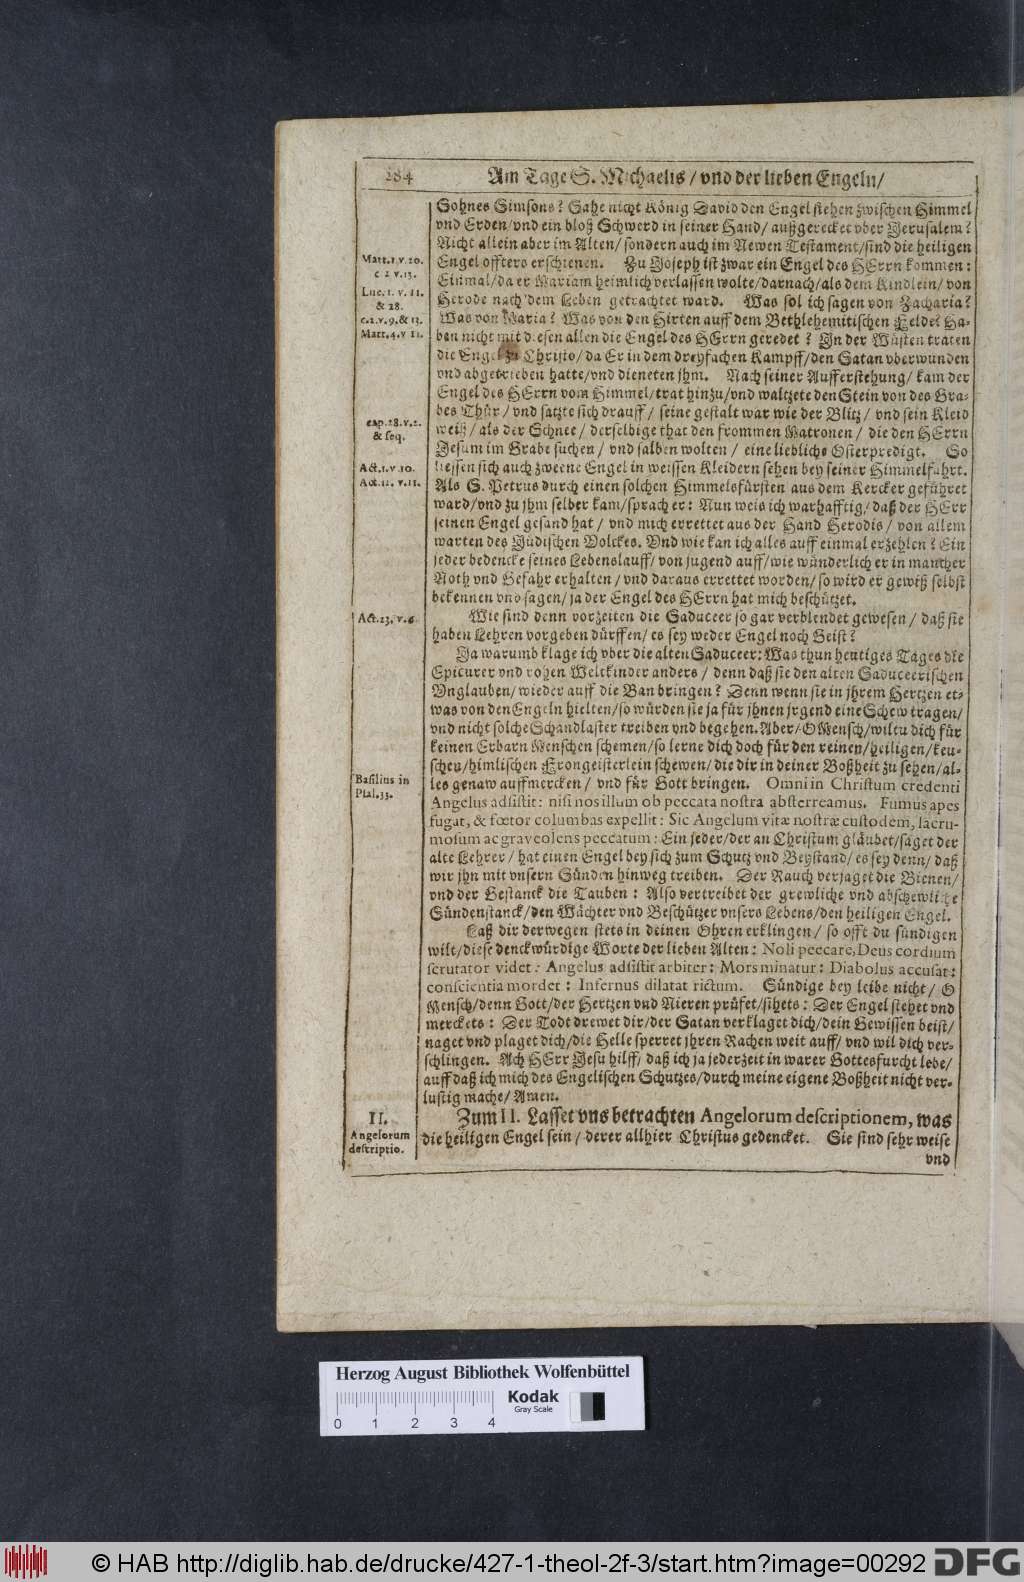 284 Am Tage S. Michaelis / vnd der lieben Engeln /
Sohnes Simsons? Sahe nicht König David den Engel stehen zwischen Himmel
vnd Erden/vnd ein bloß Schwerd in seiner Hand/ außgerecket vber Jerusalem?
Nicht allein aber im Alten/ sondern auch im Newen Testament/sind die heiligen
Matt.1.v.20. Engel offters erschienen. Zu Joseph ist zwar ein Engel des HErrn kommen:
c 2 v.13. Einmal/da er Mariam heimlich verlassen wolte/darnach/als dem Kindlein/ von
Luc. 1. v. 11. Herode nach dem Leben getrachtet ward. Was sol ich sagen von Zacharia?
& 28.
c.2.v.9.& 13. Was von Maria? Was von den Hirten auff dem Bethlehemitischen Felde? Ha-
Matt.4.v 11. ben nicht mit diesen allen die Engel des HErrn geredet? In der Wüsten traten
die Engel zu Christo/da Er in dem dreyfachen Kampff/den Satan vberwunden
vnd abgetrieben hatte/vnd dieneten jhm. Nach seiner Aufferstehung/ kam der
Engel des HErrn vom Himmel/trat hinzu/vnd waltzete den Stein von des Gra-
bes Thür/ vnd satzte sich drauff/ seine gestalt war wie der Blitz/ vnd sein Kleid
cap.28.v.2. weiß/ als der Schnee/ derselbige that den frommen Matronen/ die den HErrn
& seq. Jesum im Grabe suchen/ vnd salben wolten/ eine liebliche Osterpredigt. So
Act.1.v.10. liessen sich auch zweene Engel in weissen Kleidern sehen bey seiner Himmelfahrt.
Act.12. v.11. Als S. Petrus durch einen solchen Himmelsfürsten aus dem Kercker geführet
ward/vnd zu jhm selber kam/sprach er: Nun weis ich warhafftig/ daß der HErr
seinen Engel gesand hat/ vnd mich errettet aus der Hand Herodis/ von allem
warten des Jüdischen Volckes. Vnd wie kan ich alles auff einmal erzehlen? Ein
jeder bedencke seines Lebenslauff/ von jugend auff/wie wünderlich er in mancher
Noth vnd Gefahr erhalten/ vnd daraus errettet worden/ so wird er gewiß selbst
bekennen vnd sagen/ ja der Engel des HErrn hat mich beschützet.
Act.23. v.6. Wie sind denn vorzeiten die Saduceer so gar verblendet gewesen/ daß sie
haben Lehren vorgeben dürffen/ es sey weder Engel noch Geist?
Ja warumb klage ich vber die alten Saduceer: Was thun heutiges Tages die
Epicurer vnd rohen Weltkinder anders/ denn daß sie den alten Saduceerischen
Vnglauben/ wieder auff die Ban bringen? Denn wenn sie in jhrem Hertzen et-
was von den Engeln hielten/so würden sie ja für jhnen jrgend eine Schew tragen/
vnd nicht solche Schandlaster treiben vnd begehen. Aber/ O Mensch/wiltu dich für
keinen Erbarn Menschen schemen/so lerne dich doch für den reinen/heiligen/ keu-
schen/himlischen Frongeisterlein schewen/die dir in deiner Boßheit zu sehen/al-
Basilius in les genaw auffmercken/ vnd für Gott bringen. Omni in Christum credenti
Psal.33. Angelus adsistit: nisi nos illum ob peccata nostra absterreamus. Fumus apes
fugat, & fœtor columbas expellit: Sic Angelum vitæ nostræ custodem, lacru-
mosum ac graveolens peccatum: Ein jeder/der an Christum gläubet/saget der
alte Lehrer/ hat einen Engel bey sich zum Schutz vnd Beystand/ es sey denn/ daß
wir jhn mit vnsern Sünden hinweg treiben. Der Rauch verjaget die Bienen/
vnd der Gestanck die Tauben: Also vertreibet der grewliche vnd abschewliche
Sündenstanck/den Wächter vnd Beschützer vnsers Lebens/den heiligen Engel.
Laß dir derwegen stets in deinen Ohren erklingen/ so offt du sündigen
wilt/diese denckwürdige Worte der lieben Alten: Noli peccare, Deus cordium
scrutator videt: Angelus adsistit arbiter: Mors minatur: Diabolus accusat:
conscientia mordet: Infernus dilatat rictum. Sündige bey leibe nicht/ O
Mensch/denn Gott/der Hertzen vnd Nieren prüfet/sihets: Der Engel stehet vnd
merckets: Der Todt drewet dir/der Satan verklaget dich/dein Gewissen beist/
naget vnd plaget dich/die Helle sperret jhren Rachen weit auff/ vnd wil dich ver-
schlingen. Ach HErr Jesu hilff/ daß ich ja jederzeit in warer Gottesfurcht lebe/
auff daß ich mich des Engelischen Schutzes/durch meine eigene Boßheit nicht ver-
lustig mache/ Amen.
II. Zum II. Lasset vns betrachten Angelorum descriptionem, was
Angelorum die heiligen Engel sein/ derer allhier Christus gedencket. Sie sind sehr weise
descriptio.
vnd
Herzog August Bibliothek Wolfenbüttel
0 1 2 3 4
Kodak
Gray Scale
© HAB http://diglib.hab.de/drucke/427-1-theol-2f-3/start.htm?image=00292 DFG